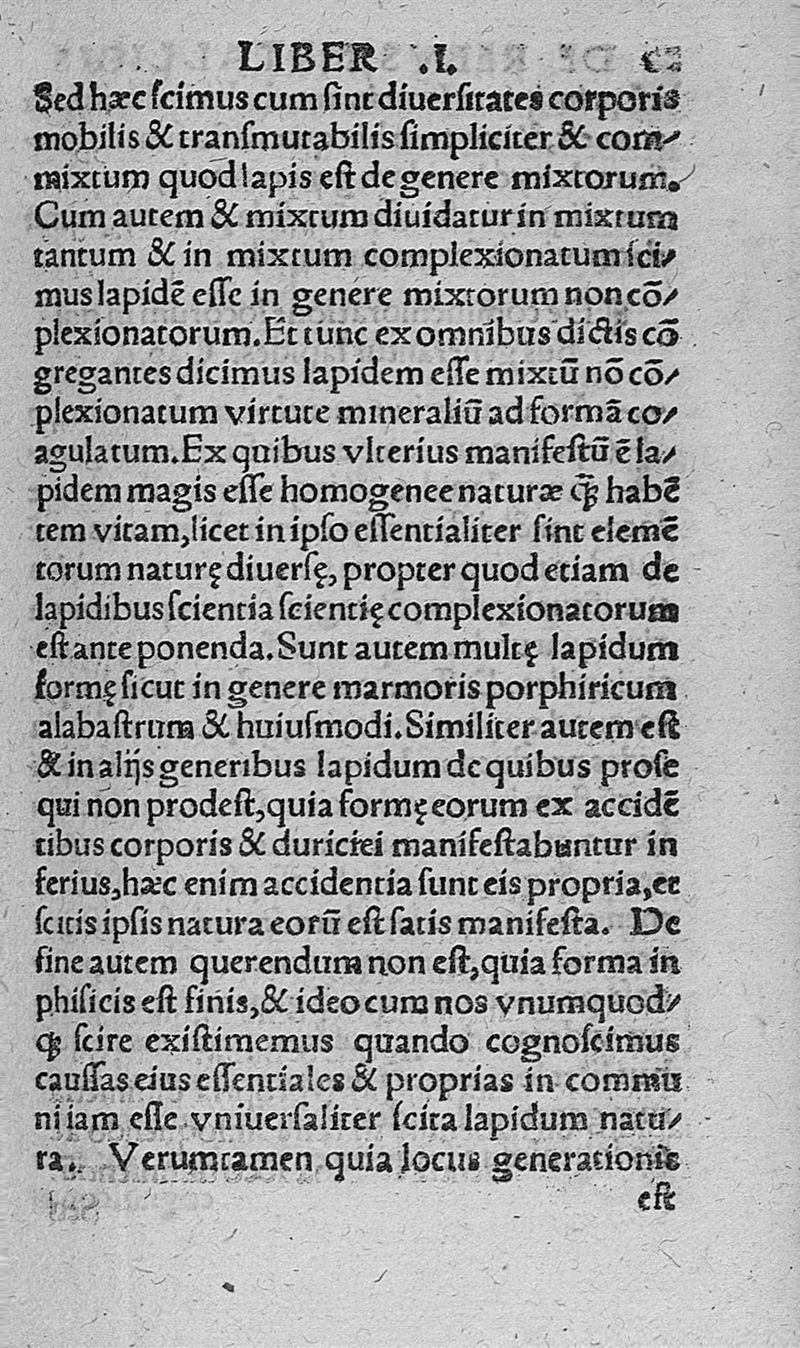 LIBER .I.
Sed hæc ſcimus cum ſint diuerſitates corporis
mobilis & tranſmutabilis ſimpliciter & com-
mixtum quod lapis eſt de genere mixtorum.
Cum autem & mixtum diuidatur in mixtum
tantum & in mixtum complexionatum ſci-
mus lapidē eſſe in genere mixtorum non cō-
plexionatorum. Et tunc ex omnibus dictis cō
gregantes dicimus lapidem eſſe mixtū nō cō-
plexionatum virtute mineraliū ad formā co-
agulatum. Ex quibus vlterius manifeſtū ē la-
pidem magis eſſe homogenee naturæ ꝙ̃ habē
tem vitam, licet in ipſo eſſentialiter ſint elemē
torum naturę diuerſę, propter quod etiam de
lapidibus ſcientia ſcientię complexionatorum
eſt ante ponenda. Sunt autem multę lapidum
formę ſicut in genere marmoris porphiricum
alabaſtrum & huiuſmodi. Similiter autem eſt
& in alijs generibus lapidum de quibus proſe
qui non prodeſt, quia formę eorum ex accidē
tibus corporis & duriciei manifeſtabuntur in
ferius, hæc enim accidentia ſunt eis propria, et
ſcitis ipſis natura eorū eſt ſatis manifeſta. De
fine autem querendum non eſt, quia forma in
phiſicis eſt finis, & ideo cum nos vnumquod-
ꝙ ſcire exiſtimemus quando cognoſcimus
cauſſas eius eſſentiales & proprias in commu
ni iam eſſe vniuerſaliter ſcita lapidum natu-
ra. Verumtamen quia locus generationis
eſt